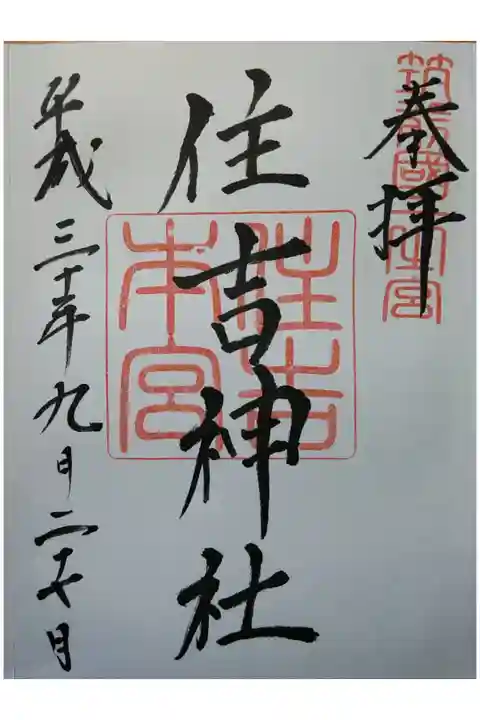 奉拝
筑前國一之宮
住吉神社
住吉
本宮
平成三十年九月二十七日